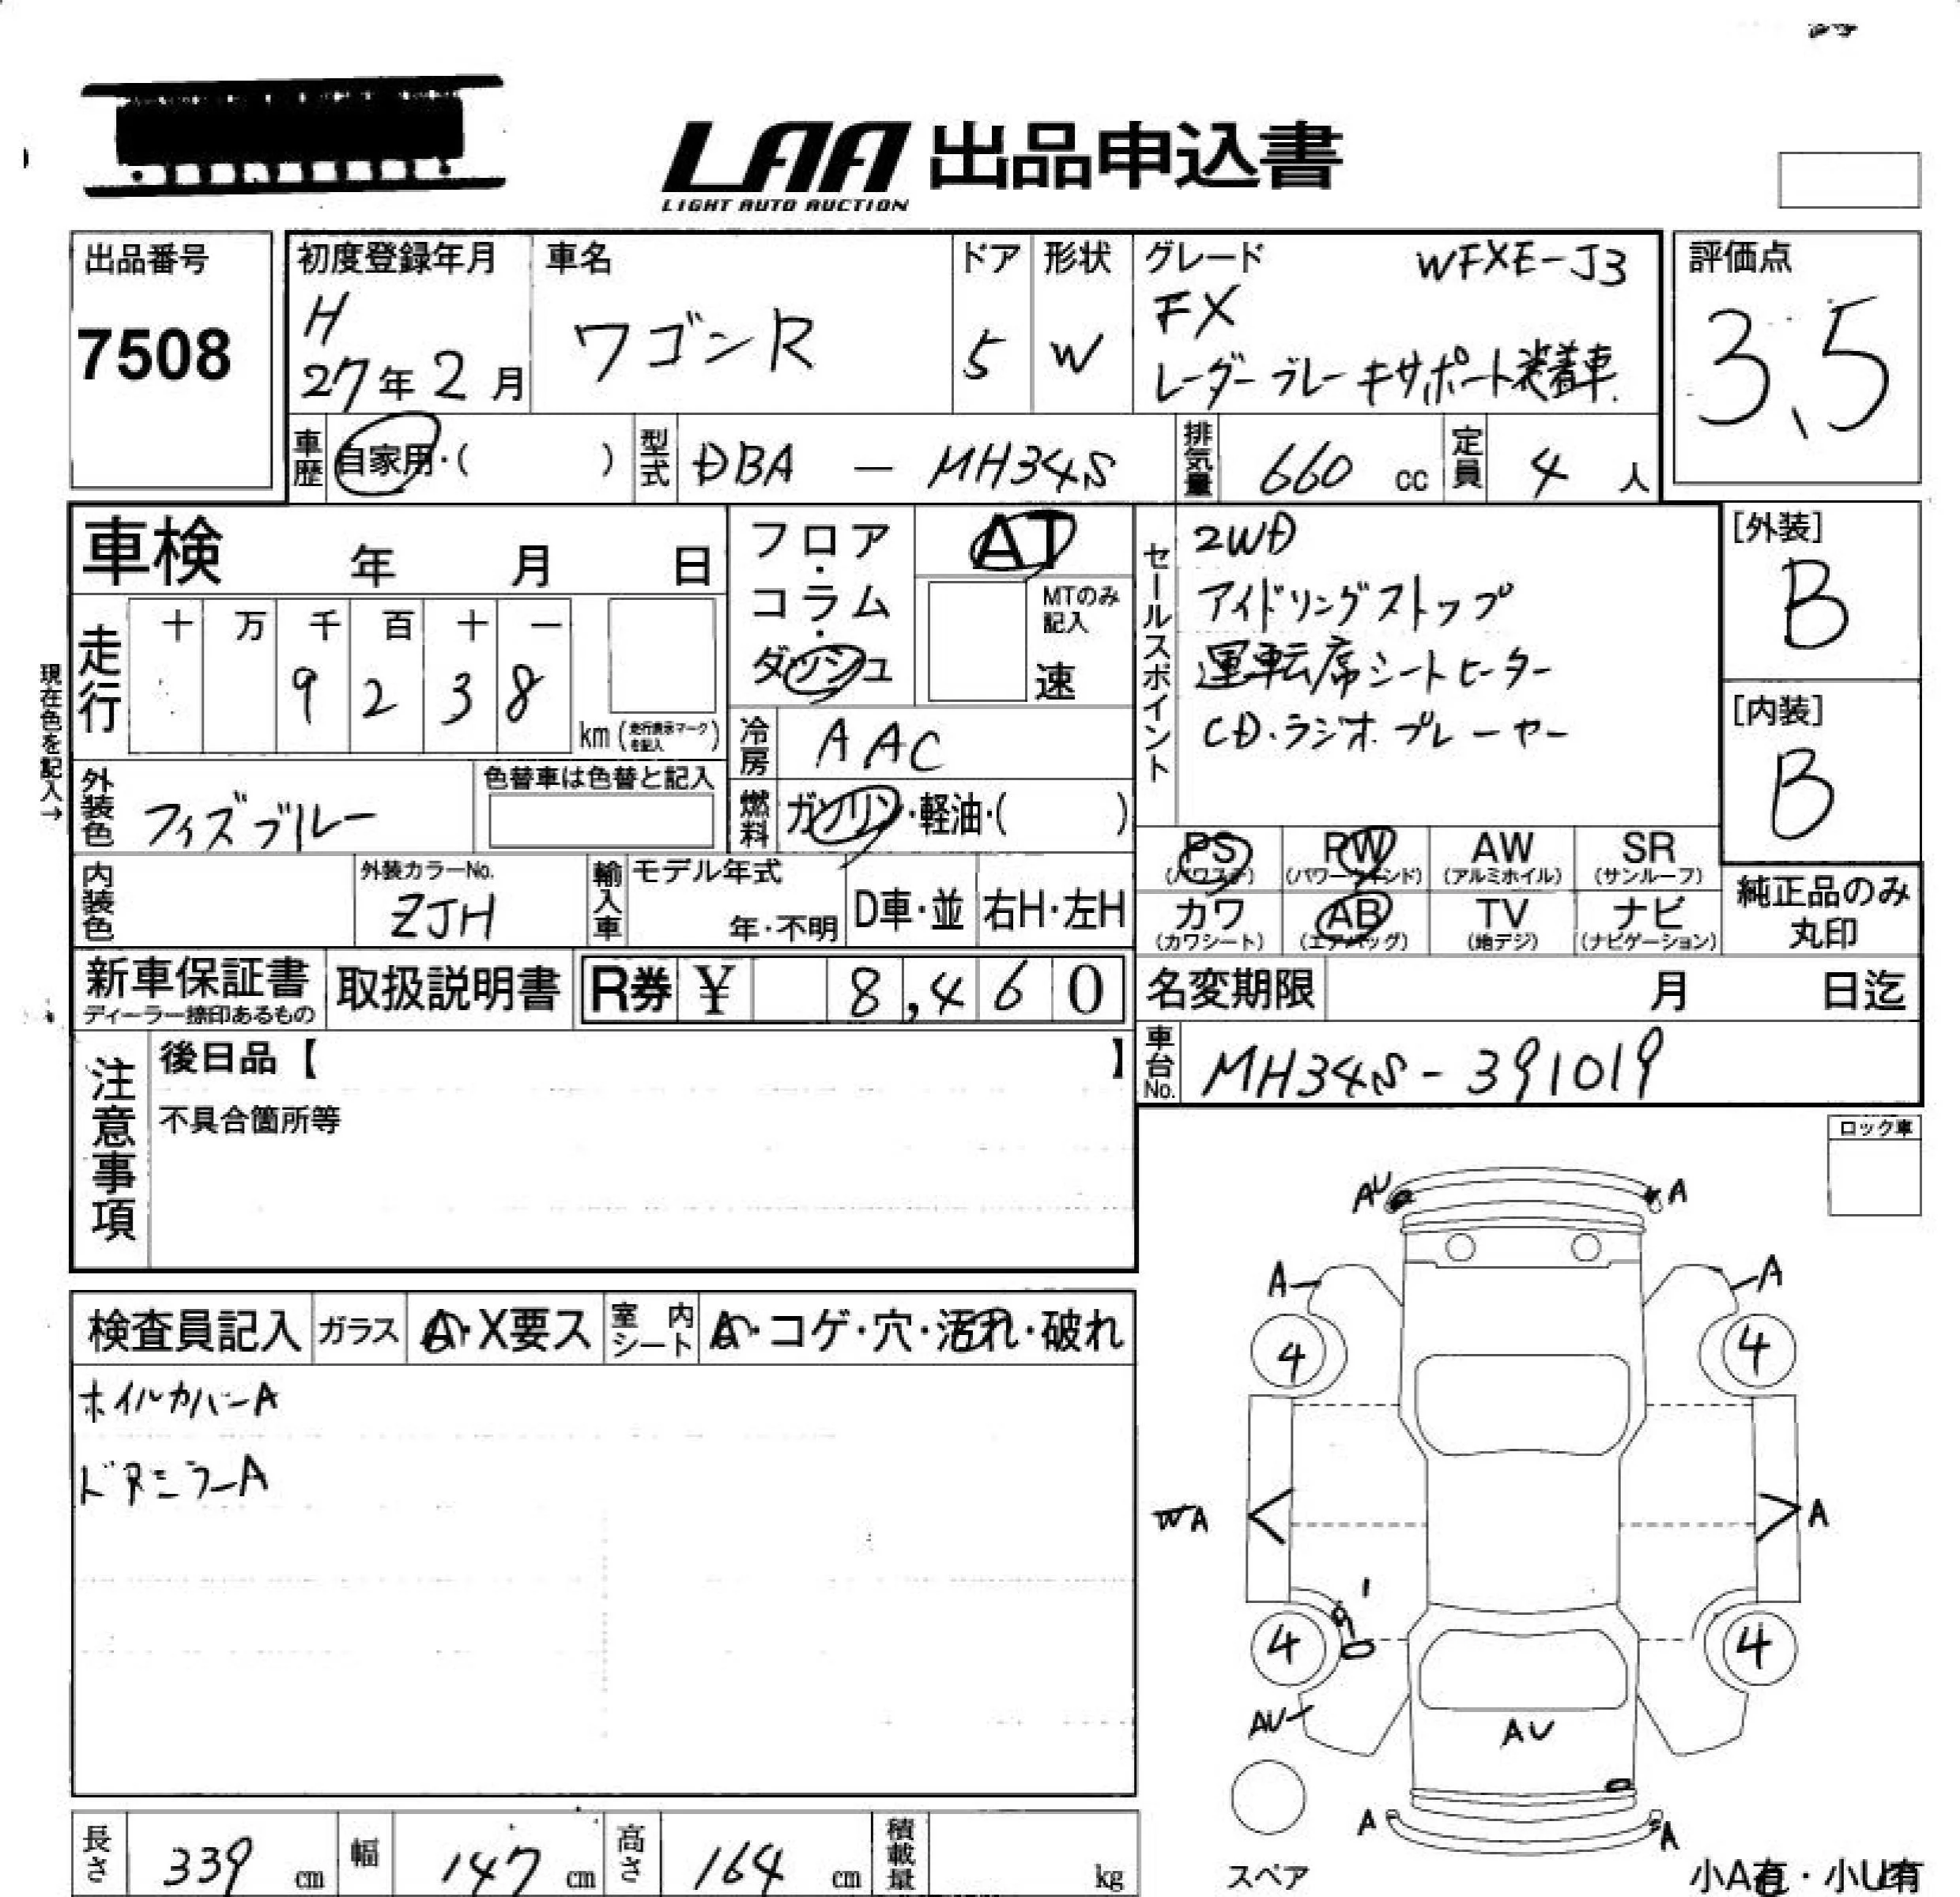 LAA 出品申込書
LIGHT AUTO AUCTION
出品番号
7508
初度登録年月
H
27年2月
車名
ワゴンR
ドア
5
形状
W
グレード
WFXE-J3
FX
レーダーブレーキサポート装着車.
評価点
3.5
車歴
自家用・( )
型式
DBA - MH34S
排気量
660 cc
定員
4 人
車検 年 月 日
フロア・コラム・ダッシュ
AT
MTのみ記入
速
セールスポイント
2WD
アイドリングストップ
運転席シートヒーター
CD・ラジオ プレーヤー
[外装]
B
[内装]
B
現在色を記入→
走行
十 万 千 百 十 一
9 2 3 8
km(走行表示マークを記入)
冷房
AAC
外装色
フィズブルー
色替車は色替と記入
燃料
ガソリン・軽油・( )
PS
(パワステ)
PW
(パワーウィンド)
AW
(アルミホイル)
SR
(サンルーフ)
カワ
(カワシート)
AB
(エアバッグ)
TV
(地デジ)
ナビ
(ナビゲーション)
純正品のみ
丸印
内装色
外装カラーNo.
ZJH
輸入車
モデル年式
年・不明
D車・並
右H・左H
新車保証書
ディーラー捺印あるもの
取扱説明書
R券 ¥ 8,460
名変期限 月 日迄
車台No.
MH34S-391019
注意事項
後日品【 】
不具合箇所等
ロック車
検査員記入
ガラス
A・X要ス
室内シート
A・コゲ・穴・汚れ・破れ
ホイルカバーA
ドアミラーA
AU
A
A
A
4
4
A
A
4
4
AU
AU
A
A
スペア
小A有・小U有
長さ
339 cm
幅
147 cm
高さ
164 cm
積載量
kg